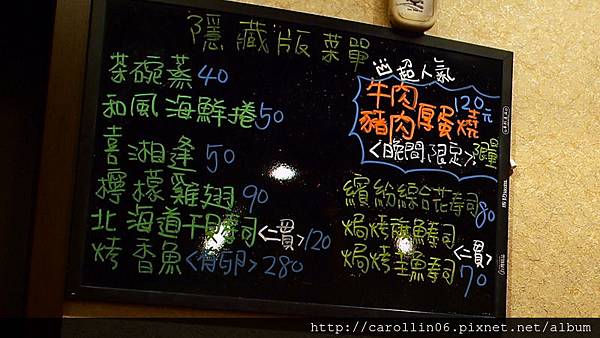 隱藏版菜單
茶碗蒸40
和風海鮮捲50
喜相逢50
檸檬雞翅90
北海道干貝壽司<二貫>120
烤香魚<有卵>280
超人氣
牛肉120元
豬肉厚蛋燒
<晚間限定>限量
繽紛綜合花壽司80
焗烤鮭魚壽司
<二貫>
焗烤 魚壽司70
http://carollin06.pixnet.net/album